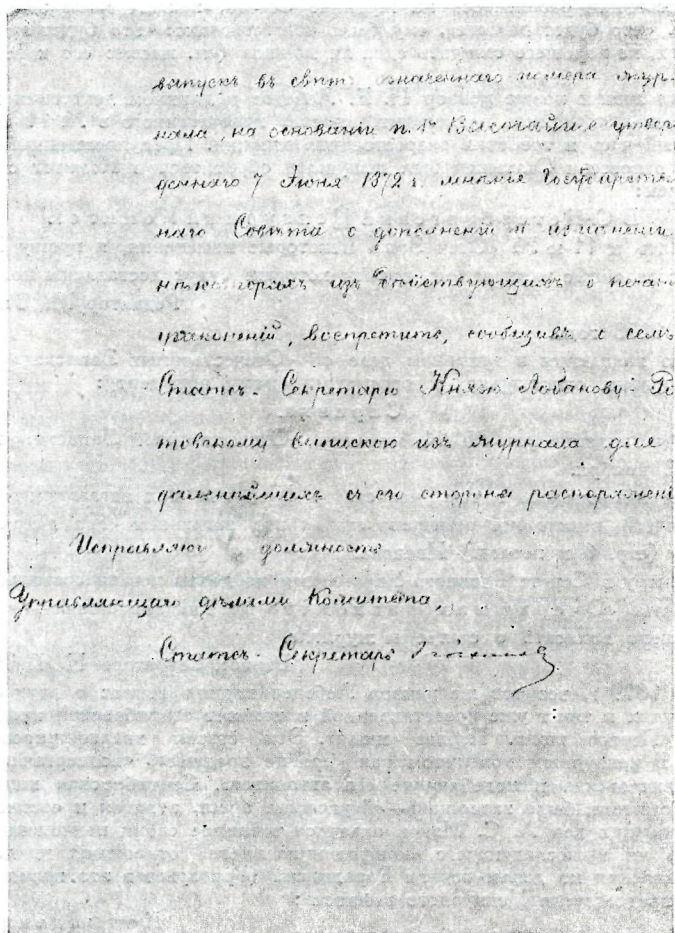 выпускъ въ свѣтъ означеннаго номера жур-
нала, на основаніи п. 1го Высочайше утверж
деннаго 7 Іюня 1872 г. мнѣнія Государствен
наго Совѣта о дополненіи и измѣненіи
нѣкоторыхъ изъ дѣйствующихъ о печат
узаконеній, воспретить, сообщивъ о семъ
Статсъ-Секретарю Князю Лобанову-Рос
товскому выпискою изъ журнала для
дальнѣйшихъ съ его стороны распоряжені
Исправляющ должность
Управляющаго дѣлами Комитета,
Статсъ-Секретарь